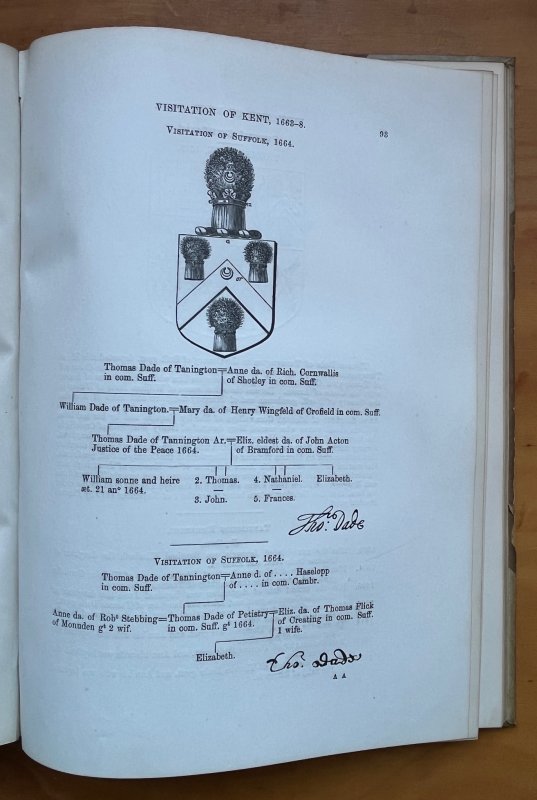 VISITATION OF KENT, 1663-8.
93
VISITATION OF SUFFOLK, 1664.
Thomas Dade of Tanington=Anne da. of Rich. Cornwallis
in com. Suff. of Shotley in com. Suff.
William Dade of Tanington.=Mary da. of Henry Wingfeld of Crofield in com. Suff.
Thomas Dade of Tannington Ar.=Eliz. eldest da. of John Acton
Justice of the Peace 1664. of Bramford in com. Suff.
William sonne and heire 2. Thomas. 4. Nathaniel. Elizabeth.
æt. 21 anº 1664.
3. John. 5. Frances.
Tho: Dade
VISITATION OF SUFFOLK, 1664.
Thomas Dade of Tannington=Anne d. of .... Haselopp
in com. Suff. of .... in com. Cambr.
Anne da. of Robt Stebbing=Thomas Dade of Petistry=Eliz. da. of Thomas Flick
of Monuden gt 2 wif. in com. Suff. gt 1664. of Creating in com. Suff.
1 wife.
Elizabeth.
Tho: Dade
A A